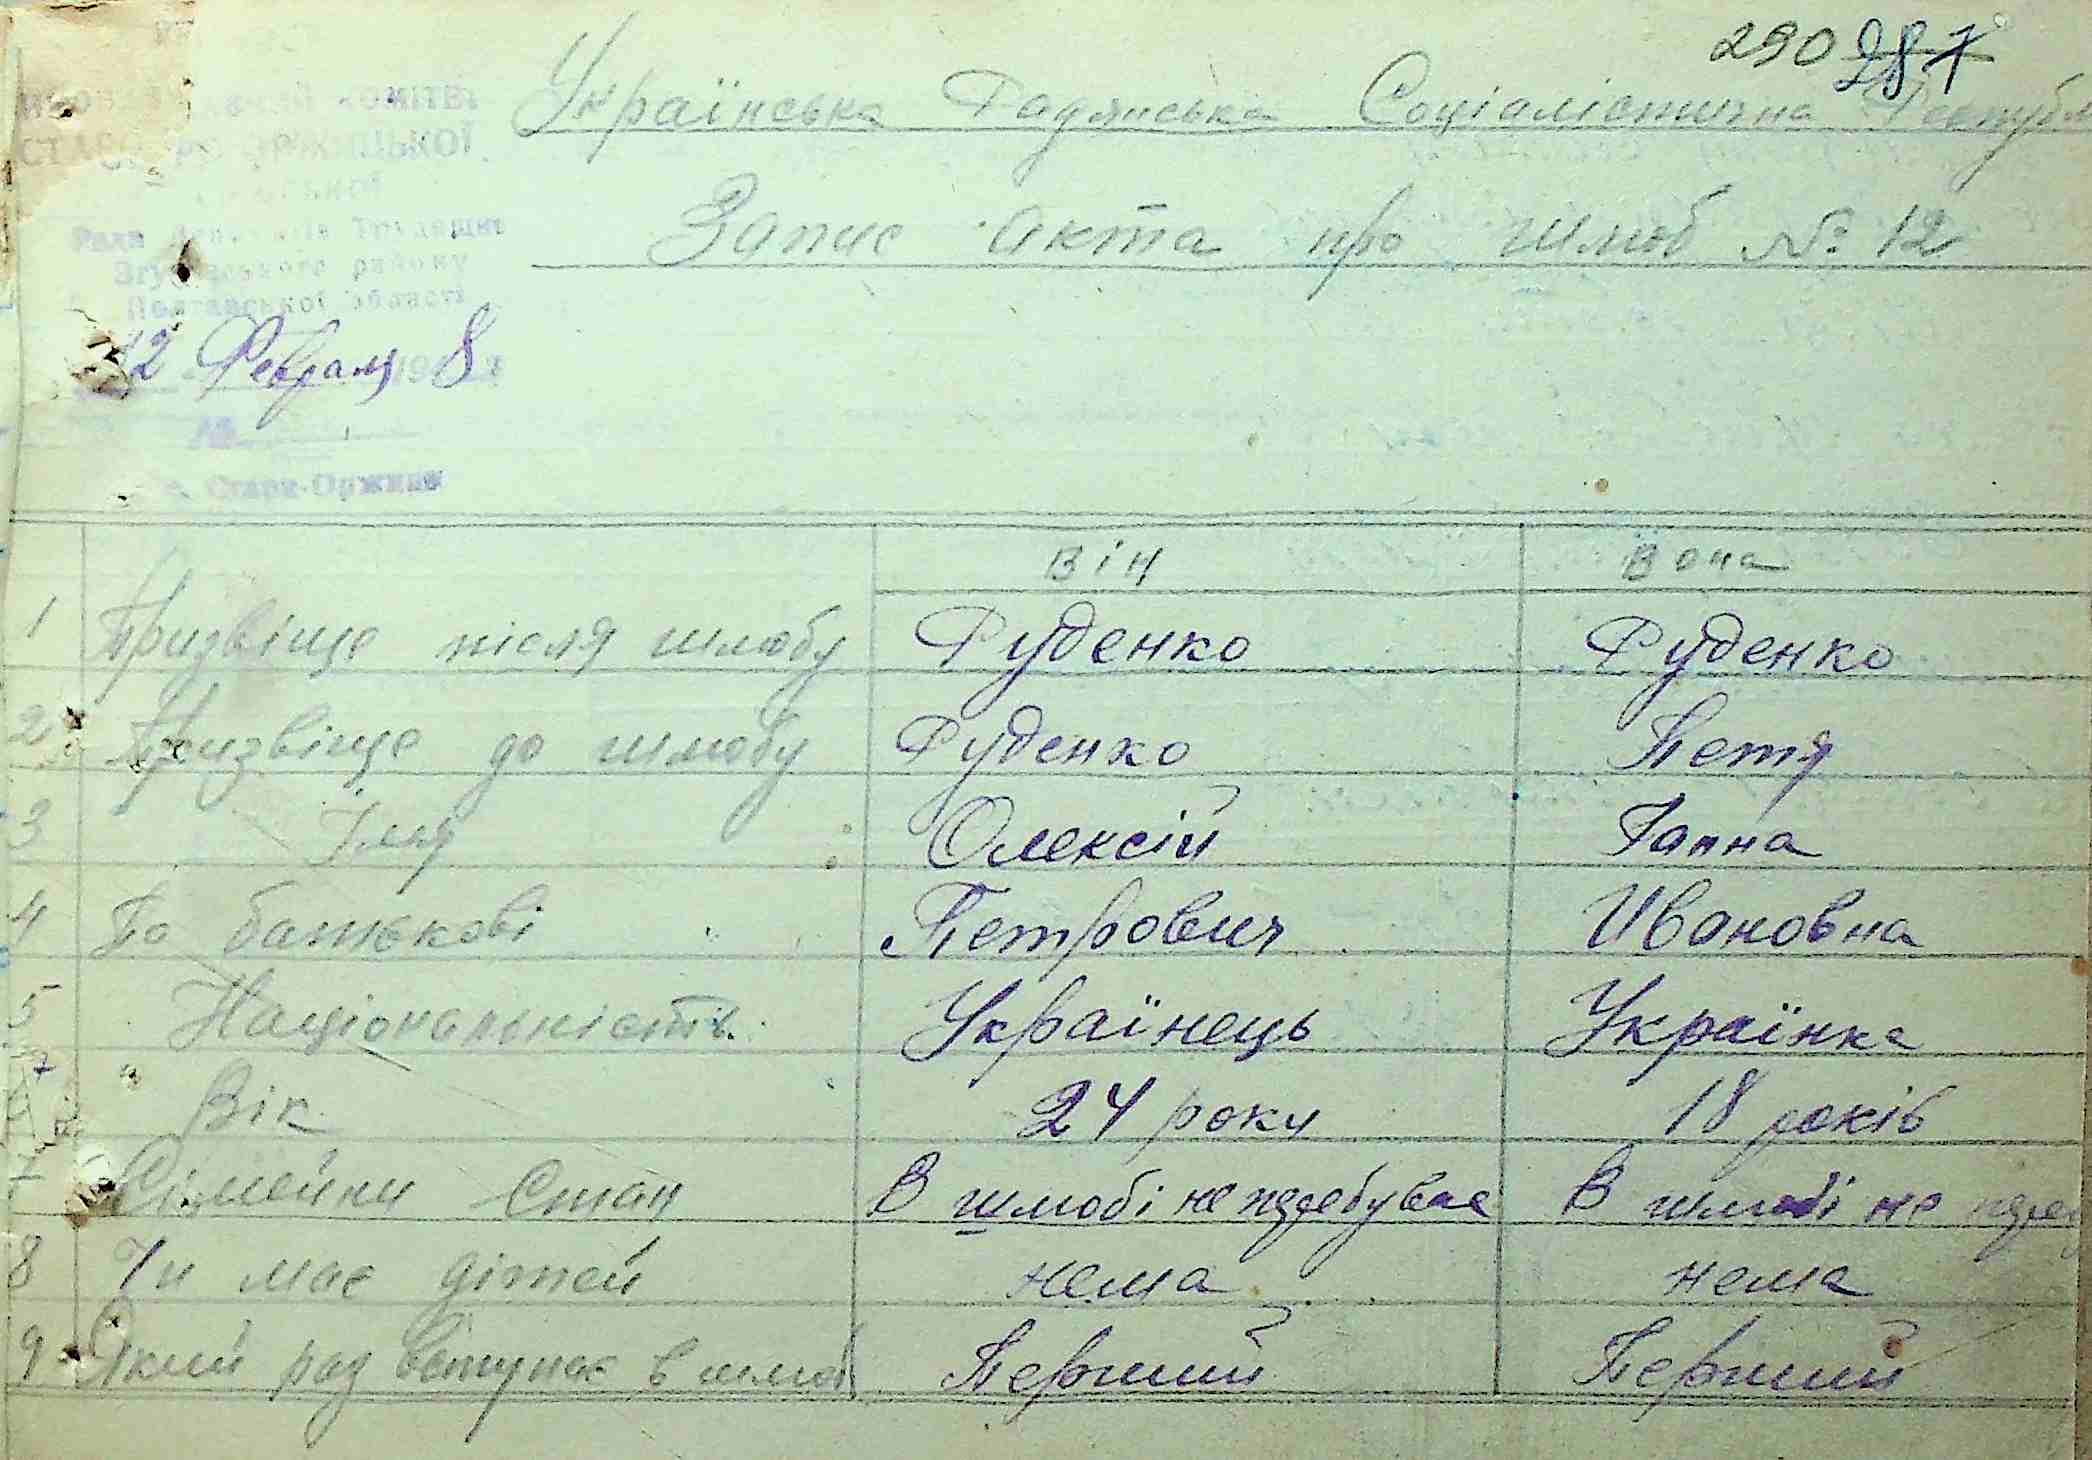 290 287
Українська Радянська Соціалістична Республ
КОМІТЕТ
СТАРО ОРЖИЦЬКОЇ
Запис акта про шлюб № 12
Ради Депутатів Трудящих
Згурівського району
Полтавської області
12 Февраля 194 8 г
№
с. Стара-Оржиця
Він Вона
1 Призвіще після шлюбу Руденко Руденко
2 Призвіще до шлюбу Руденко Петя
3 Імя Олексій Ганна
4 По батькові Петрович Ивановна
5 Національність Українець Українка
Вік 24 роки 18 років
7 Сімейни Стан В шлюбі не перебуває В шлюбі не пере
8 Чи має дітей нема нема
9 Який раз вступає в шлюб Перший Перший